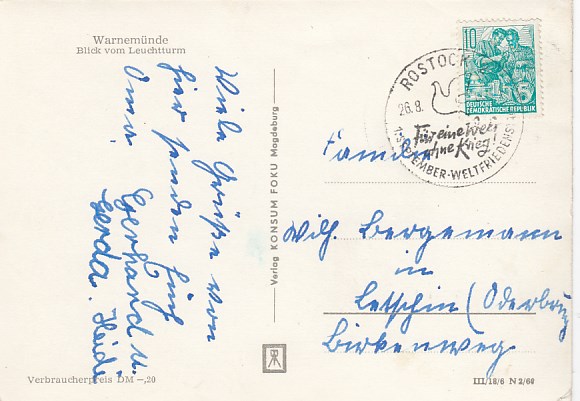 Warnemünde
Blick vom Leuchtturm
Viele Grüße von
hier senden Euch
Oma, Gerhard u.
Gerda. Heidi
Verbraucherpreis DM —,20
Verlag KONSUM FOKU Magdeburg
ROSTOCK
26.8.
Für eine Welt
ohne Krieg
1. SEPTEMBER-WELTFRIEDENSTAG
10
5
DEUTSCHE
DEMOKRATISCHE REPUBLIK
Familie
Wilh. Bergemann
in
Letschin (Oderbruch
Birkenweg
III/18/6 N 2/60